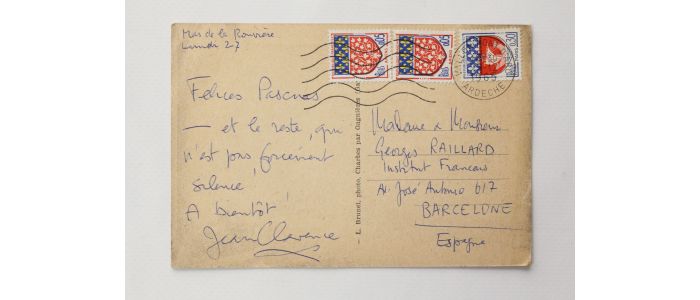 Mas de la Rouvière
Lundi 27
Felices Pascuas
— et le reste, qui
n'est pas forcément
silence,
A bientôt
Jean Clarence
— L. Brunel, photo, Charbes par
Madame & Monsieur
Georges RAILLARD
Institut Francais
Av. José Antonio 617
BARCELONE
Espagne
0,05
0,05
0,30
ARDECHE